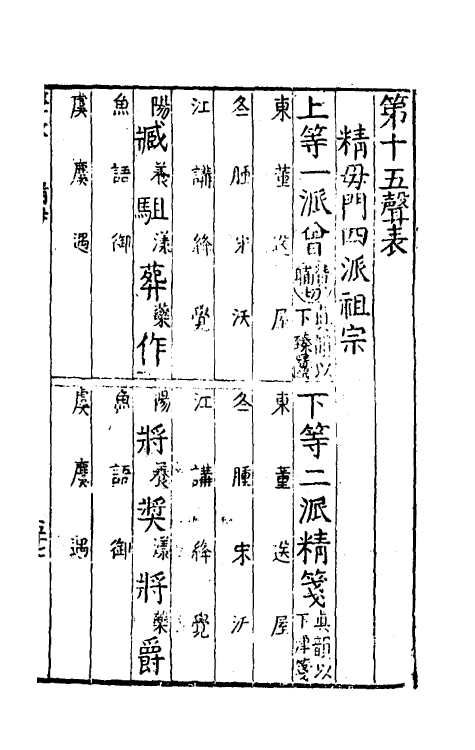 第十五聲表
精母門四派祖宗
上等一派曾
真韻以下臻
東董送屋
冬腫宋沃
江講絳覺
陽養漾藥
臧駔葬作
魚語御
虞麌遇
下等二派精箋
真韻以下津箋
東董送屋
冬腫宋沃
江講絳覺
陽養漾藥
將奬將爵
魚語御
虞麌遇